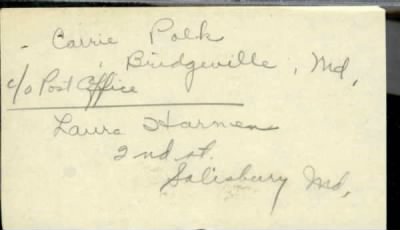 - Carrie Polk
Bridgeville, Md,
c/o Post Office
Laura Harmen
2nd st.
Salisbury Md,